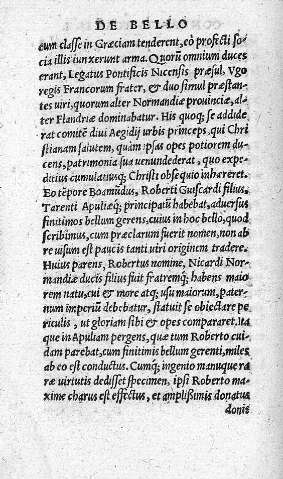 DE BELLO
eum classe in Græciam tenderent, eò profecti so
cia illis iunxerunt arma. Quorũ omnium duces
erant, Legatus Pontificis Nicensis præsul. Vgo
regis Francorum frater, & duo simul præstan-
tes uiri, quorum alter Normandiæ prouinciæ, al-
ter Flandriæ dominabatur. His quoq; se addide
rat comitẽ diui Aegidij urbis princeps, qui Chri
stianam salutem, quàm ipsas opes potiorem du-
cens, patrimonia sua uenundederat, quo expe-
ditius cumulatiusq; Christi obsequio inhæreret.
Eo tẽpore Boamũdus, Roberti Guiscardi filius,
Tarenti Apuliæq; principatũ habebat, aduersus
finitimos bellum gerens, cuius in hoc bello, quod
scribimus, cum præclarum fuerit nomen, non ab
re uisum est paucis tanti uiri originem tradere.
Huius parens, Robertus nomine, Nicardi Nor
mandiæ ducis filius fuit fratremq; habens maio
rem natu, cui & more atq; usu maiorum, pater-
num imperiũ debebatur, statuit se obiectare pe
riculis, ut gloriam sibi & opes compararet. Ita
que in Apuliam pergens, quæ tum Roberto cui
dam parebat, cum finitimis bellum gerenti, miles
ab eo est conductus. Cumq; ingenio manuque ra
ræ uirtutis dedisset specimen, ipsi Roberto ma-
xime charus est effectus, et amplißimis donatus
donis